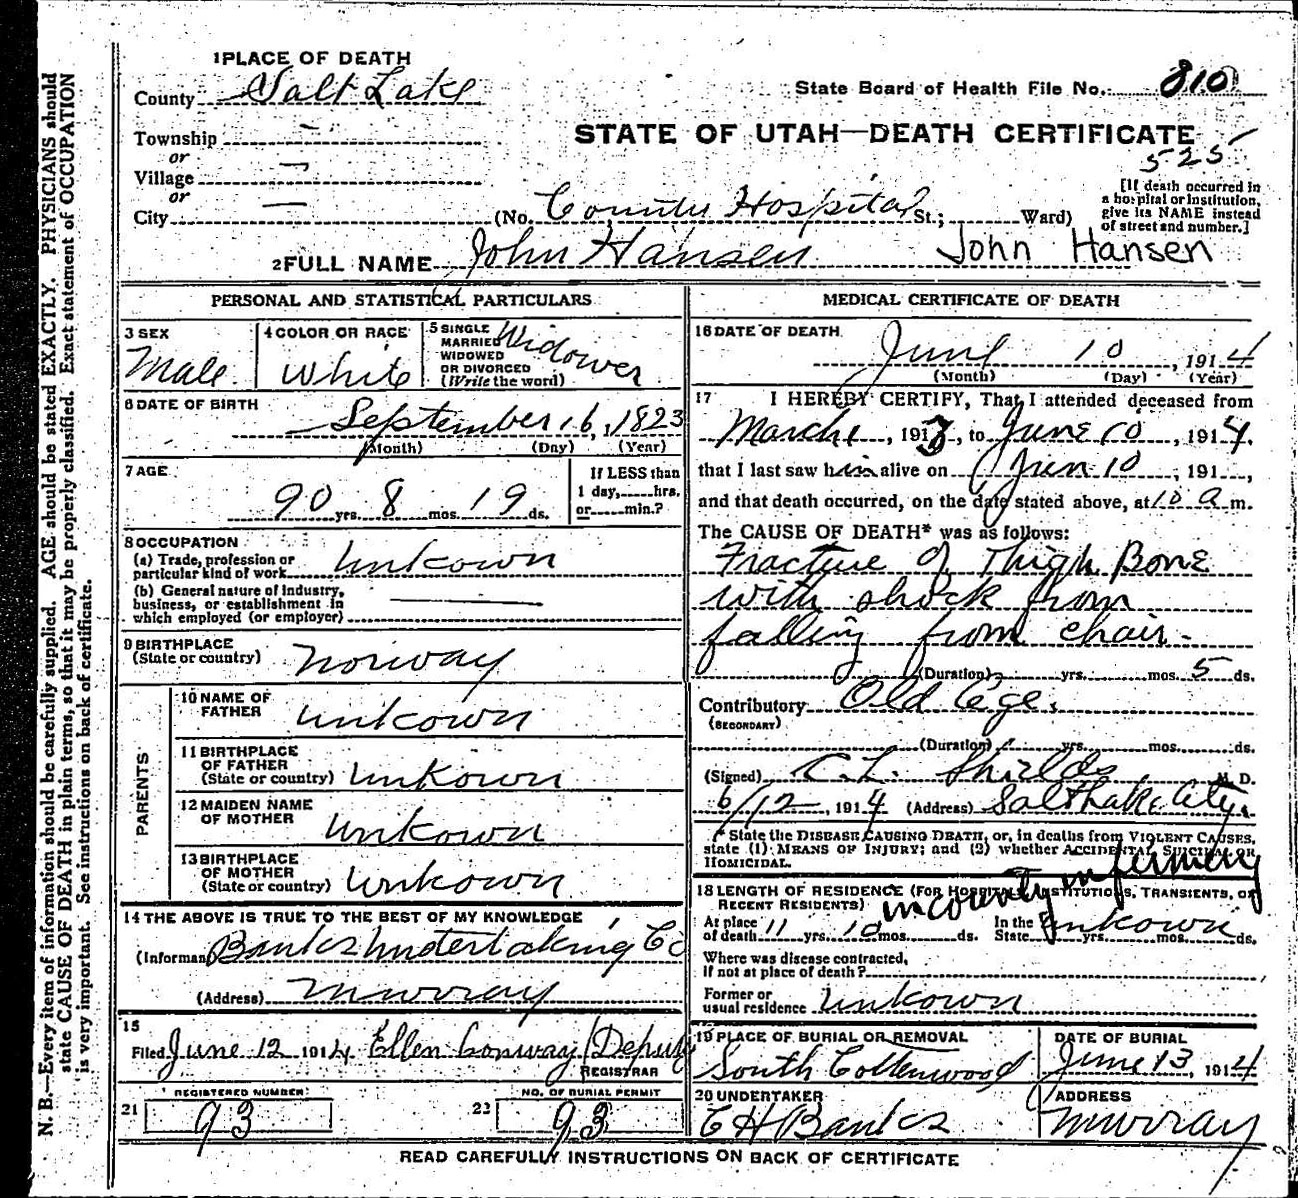 1 PLACE OF DEATH
County Salt Lake
State Board of Health File No. 810
Township —
or
Village —
or
City —
STATE OF UTAH—DEATH CERTIFICATE
525
(No. County Hospital St.; Ward)
[If death occurred in a hospital or institution, give its NAME instead of street and number.]
2 FULL NAME John Hansen John Hansen
PERSONAL AND STATISTICAL PARTICULARS
3 SEX
Male
4 COLOR OR RACE
White
5 SINGLE MARRIED WIDOWED OR DIVORCED (Write the word)
Widower
6 DATE OF BIRTH
September 16, 1823
(Month) (Day) (Year)
7 AGE
90 yrs. 8 mos. 19 ds.
If LESS than 1 day, hrs. or min.?
8 OCCUPATION
(a) Trade, profession or particular kind of work Unkown
(b) General nature of industry, business, or establishment in which employed (or employer) —
9 BIRTHPLACE
(State or country) Norway
PARENTS
10 NAME OF FATHER unkown
11 BIRTHPLACE OF FATHER (State or country) Unkown
12 MAIDEN NAME OF MOTHER Unkown
13 BIRTHPLACE OF MOTHER (State or country) Unkown
14 THE ABOVE IS TRUE TO THE BEST OF MY KNOWLEDGE
(Informant Banks Undertaking Co
(Address) Murray
15
Filed June 12 1914 Ellen Conway / Deputy
REGISTRAR
REGISTERED NUMBER
21 93
NO. OF BURIAL PERMIT
22 93
MEDICAL CERTIFICATE OF DEATH
16 DATE OF DEATH
June 10, 1914
(Month) (Day) (Year)
17 I HEREBY CERTIFY, That I attended deceased from
March 1, 1913, to June 10, 1914.
that I last saw him alive on Jun 10, 191 ,
and that death occurred, on the date stated above, at 10 a m.
The CAUSE OF DEATH* was as follows:
Fracture of Thigh Bone
with shock from
falling from chair.
(Duration) yrs. mos. 5 ds.
Contributory Old Age.
(SECONDARY)
(Duration) yrs. mos. ds.
(Signed) C. L. Shields M. D.
6/12, 1914 (Address) Salt Lake City.
* State the DISEASE CAUSING DEATH, or, in deaths from VIOLENT CAUSES, state (1) MEANS OF INJURY; and (2) whether ACCIDENTAL SUICIDAL OR HOMICIDAL.
18 LENGTH OF RESIDENCE (FOR HOSPITALS, INSTITUTIONS, TRANSIENTS, OR RECENT RESIDENTS)
in county infirmary
At place of death 11 yrs. 10 mos. ds. In the State Unkown yrs. mos. ds.
Where was disease contracted, if not at place of death?
Former or usual residence Unkown
19 PLACE OF BURIAL OR REMOVAL
South Cottonwood
DATE OF BURIAL
June 13, 1914
20 UNDERTAKER
C H Banks
ADDRESS
Murray
READ CAREFULLY INSTRUCTIONS ON BACK OF CERTIFICATE
N. B.—Every item of information should be carefully supplied. AGE should be stated EXACTLY. PHYSICIANS should
state CAUSE OF DEATH in plain terms, so that it may be properly classified. Exact statement of OCCUPATION
is very important. See instructions on back of certificate.